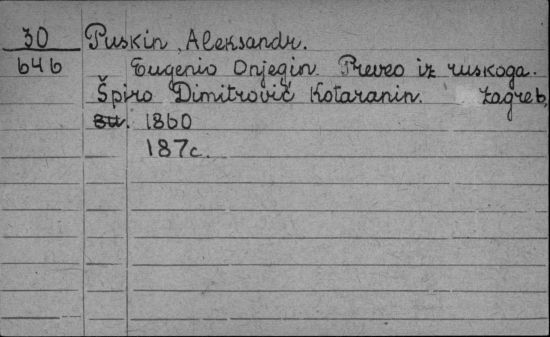 30 Puskin, Aleksandr.
646 Eugenio Onjegin. Preveo iz ruskoga.
Špiro Dimitrović Kotaranin. Zagreb,
1860
187c.